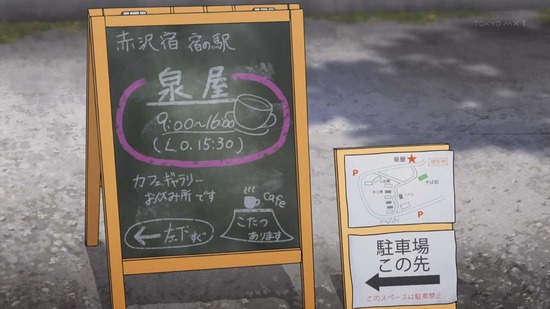 TOKYO MX 1
赤沢宿 宿の駅
泉屋
9:00~16:00
(L.O. 15:30)
カフェギャラリー
お休み所です
cafe
こたつ
あります
← 左下すぐ
泉屋★
P
P
そば店
トイレ
駐車場
この先
このスペースは駐車禁止